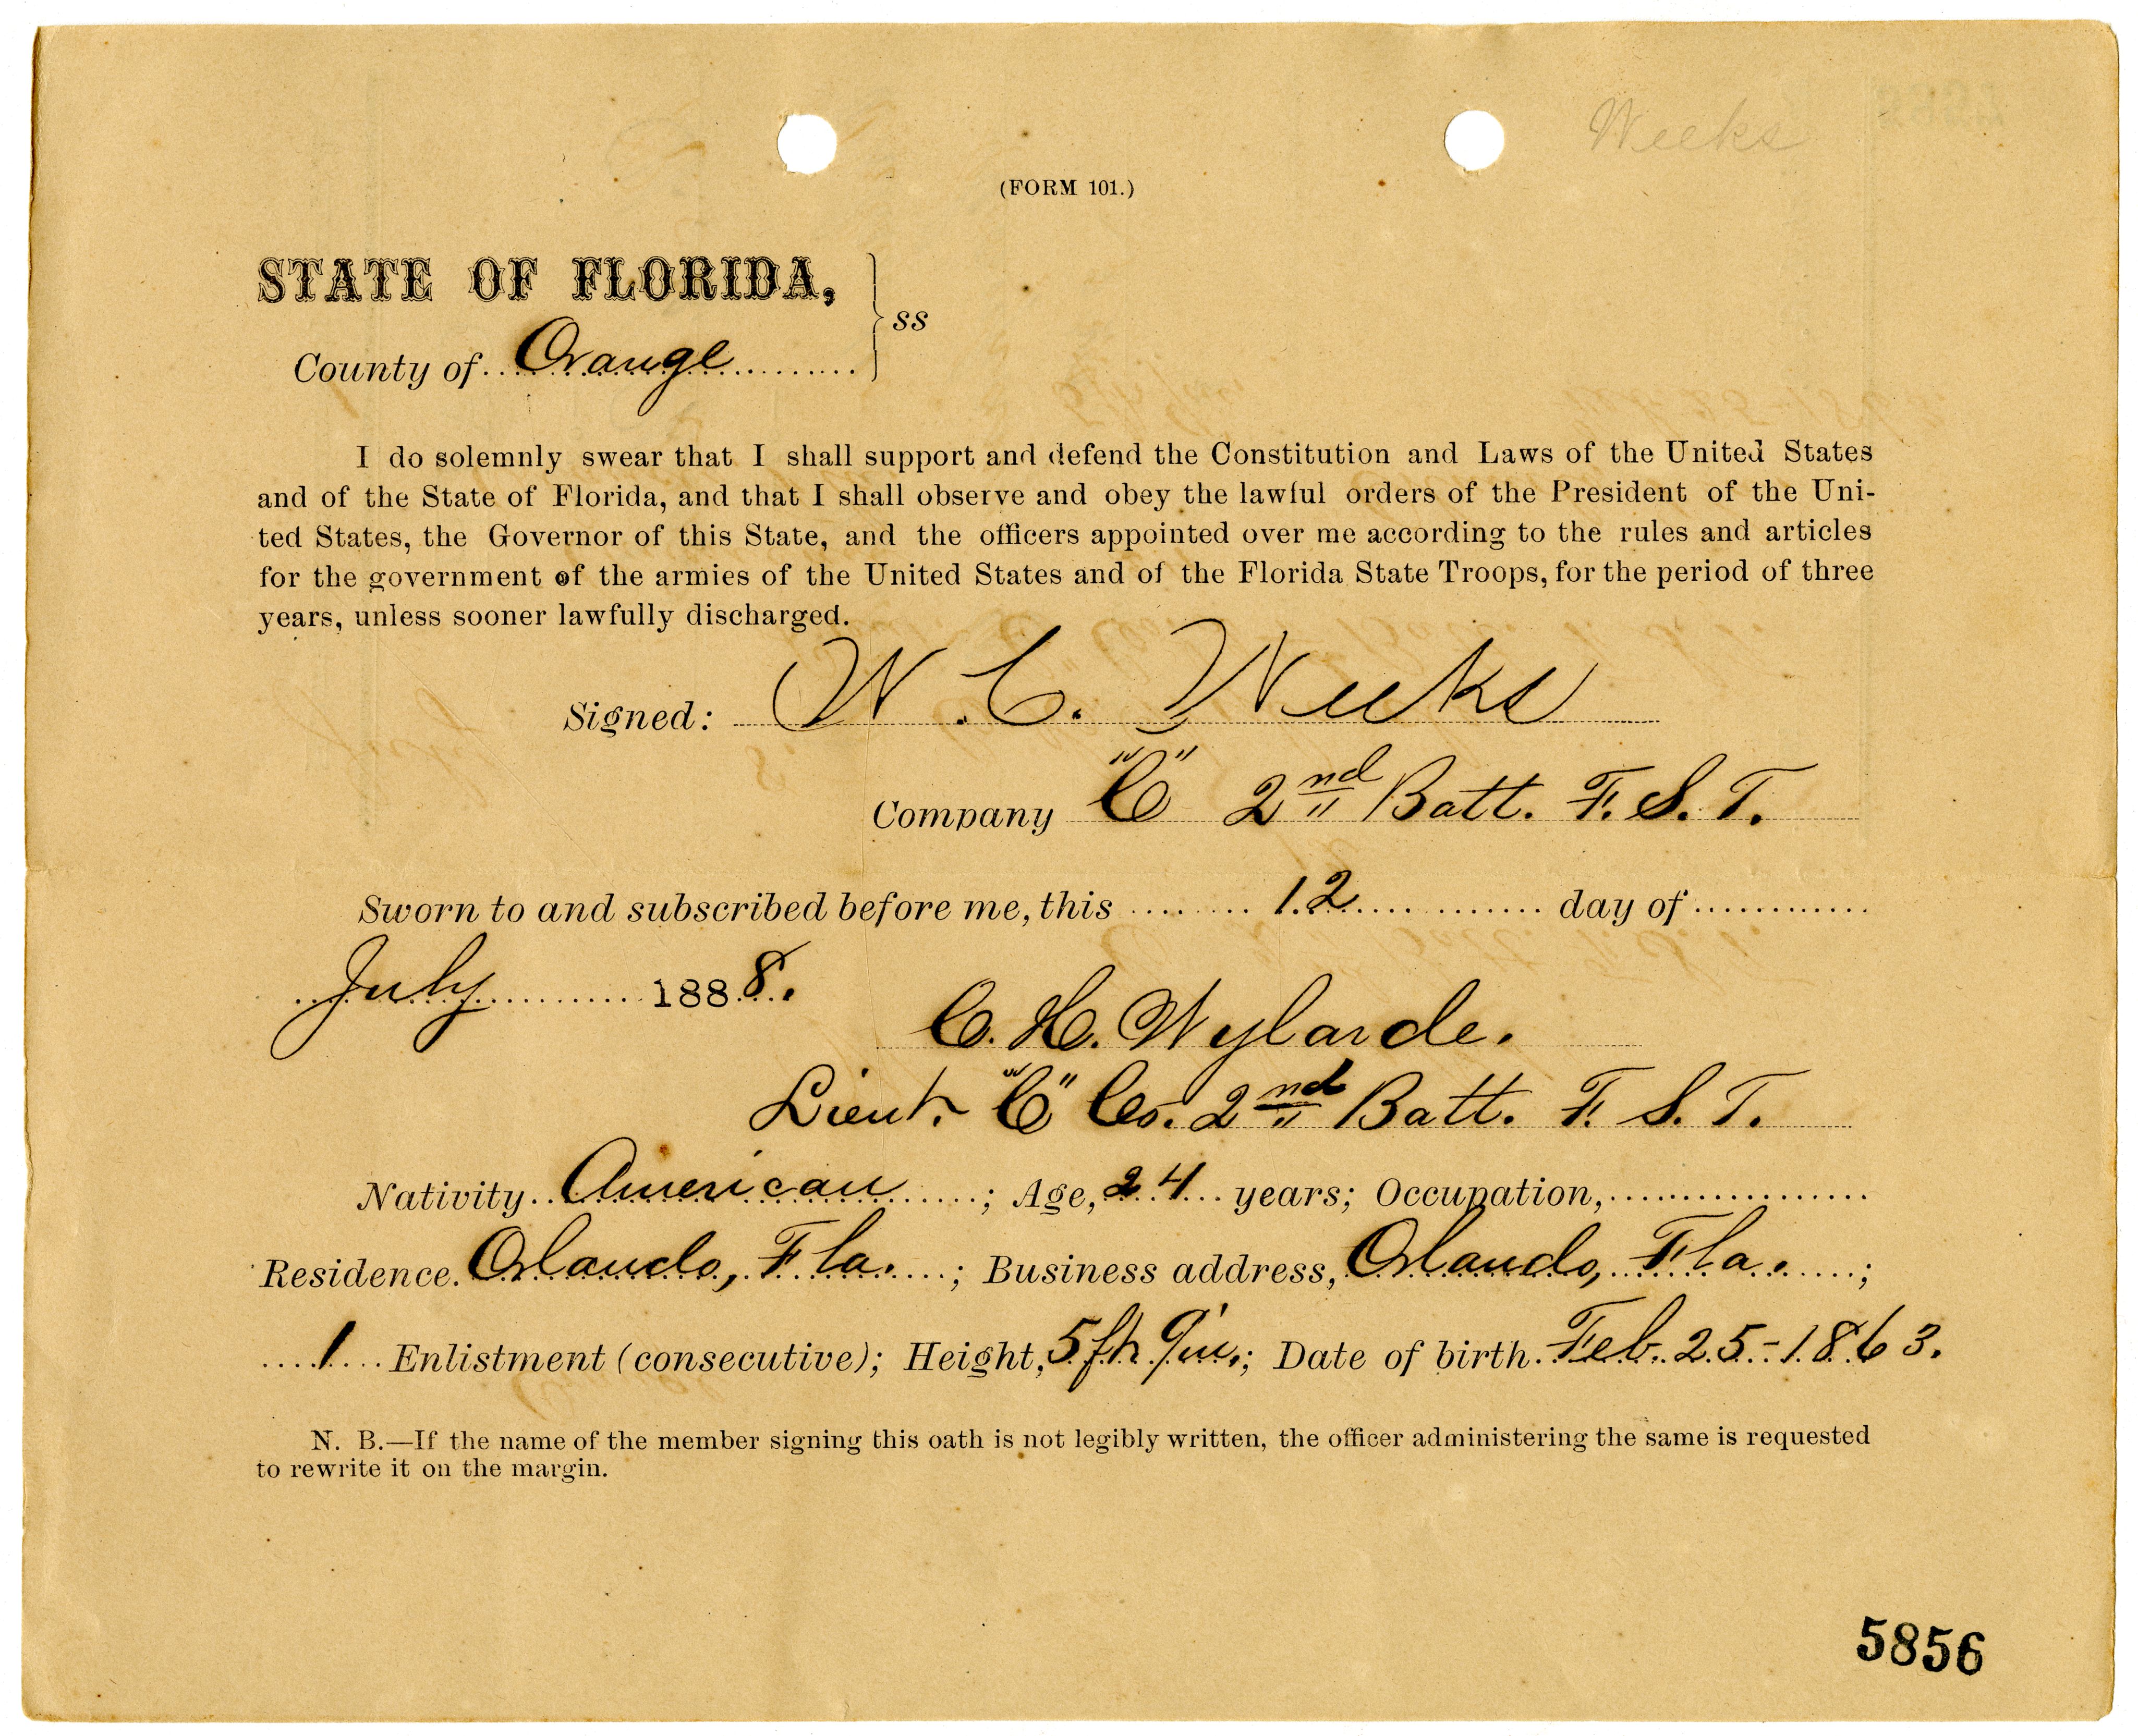 Weeks
(FORM 101.)
STATE OF FLORIDA,
County of Orange } ss
I do solemnly swear that I shall support and defend the Constitution and Laws of the United States
and of the State of Florida, and that I shall observe and obey the lawful orders of the President of the Uni-
ted States, the Governor of this State, and the officers appointed over me according to the rules and articles
for the government of the armies of the United States and of the Florida State Troops, for the period of three
years, unless sooner lawfully discharged.
Signed: W. C. Weeks
Company "C" 2nd Batt. F. S. T.
Sworn to and subscribed before me, this 12 day of
July 1888.
C. H. Wylarde.
Lieut. "C" Co. 2nd Batt. F. S. T.
Nativity American; Age, 24 years; Occupation,
Residence. Orlando, Fla.; Business address, Orlando, Fla.;
1 Enlistment (consecutive); Height, 5 ft 9 in.; Date of birth. Feb. 25-1863.
N. B.—If the name of the member signing this oath is not legibly written, the officer administering the same is requested
to rewrite it on the margin.
5856